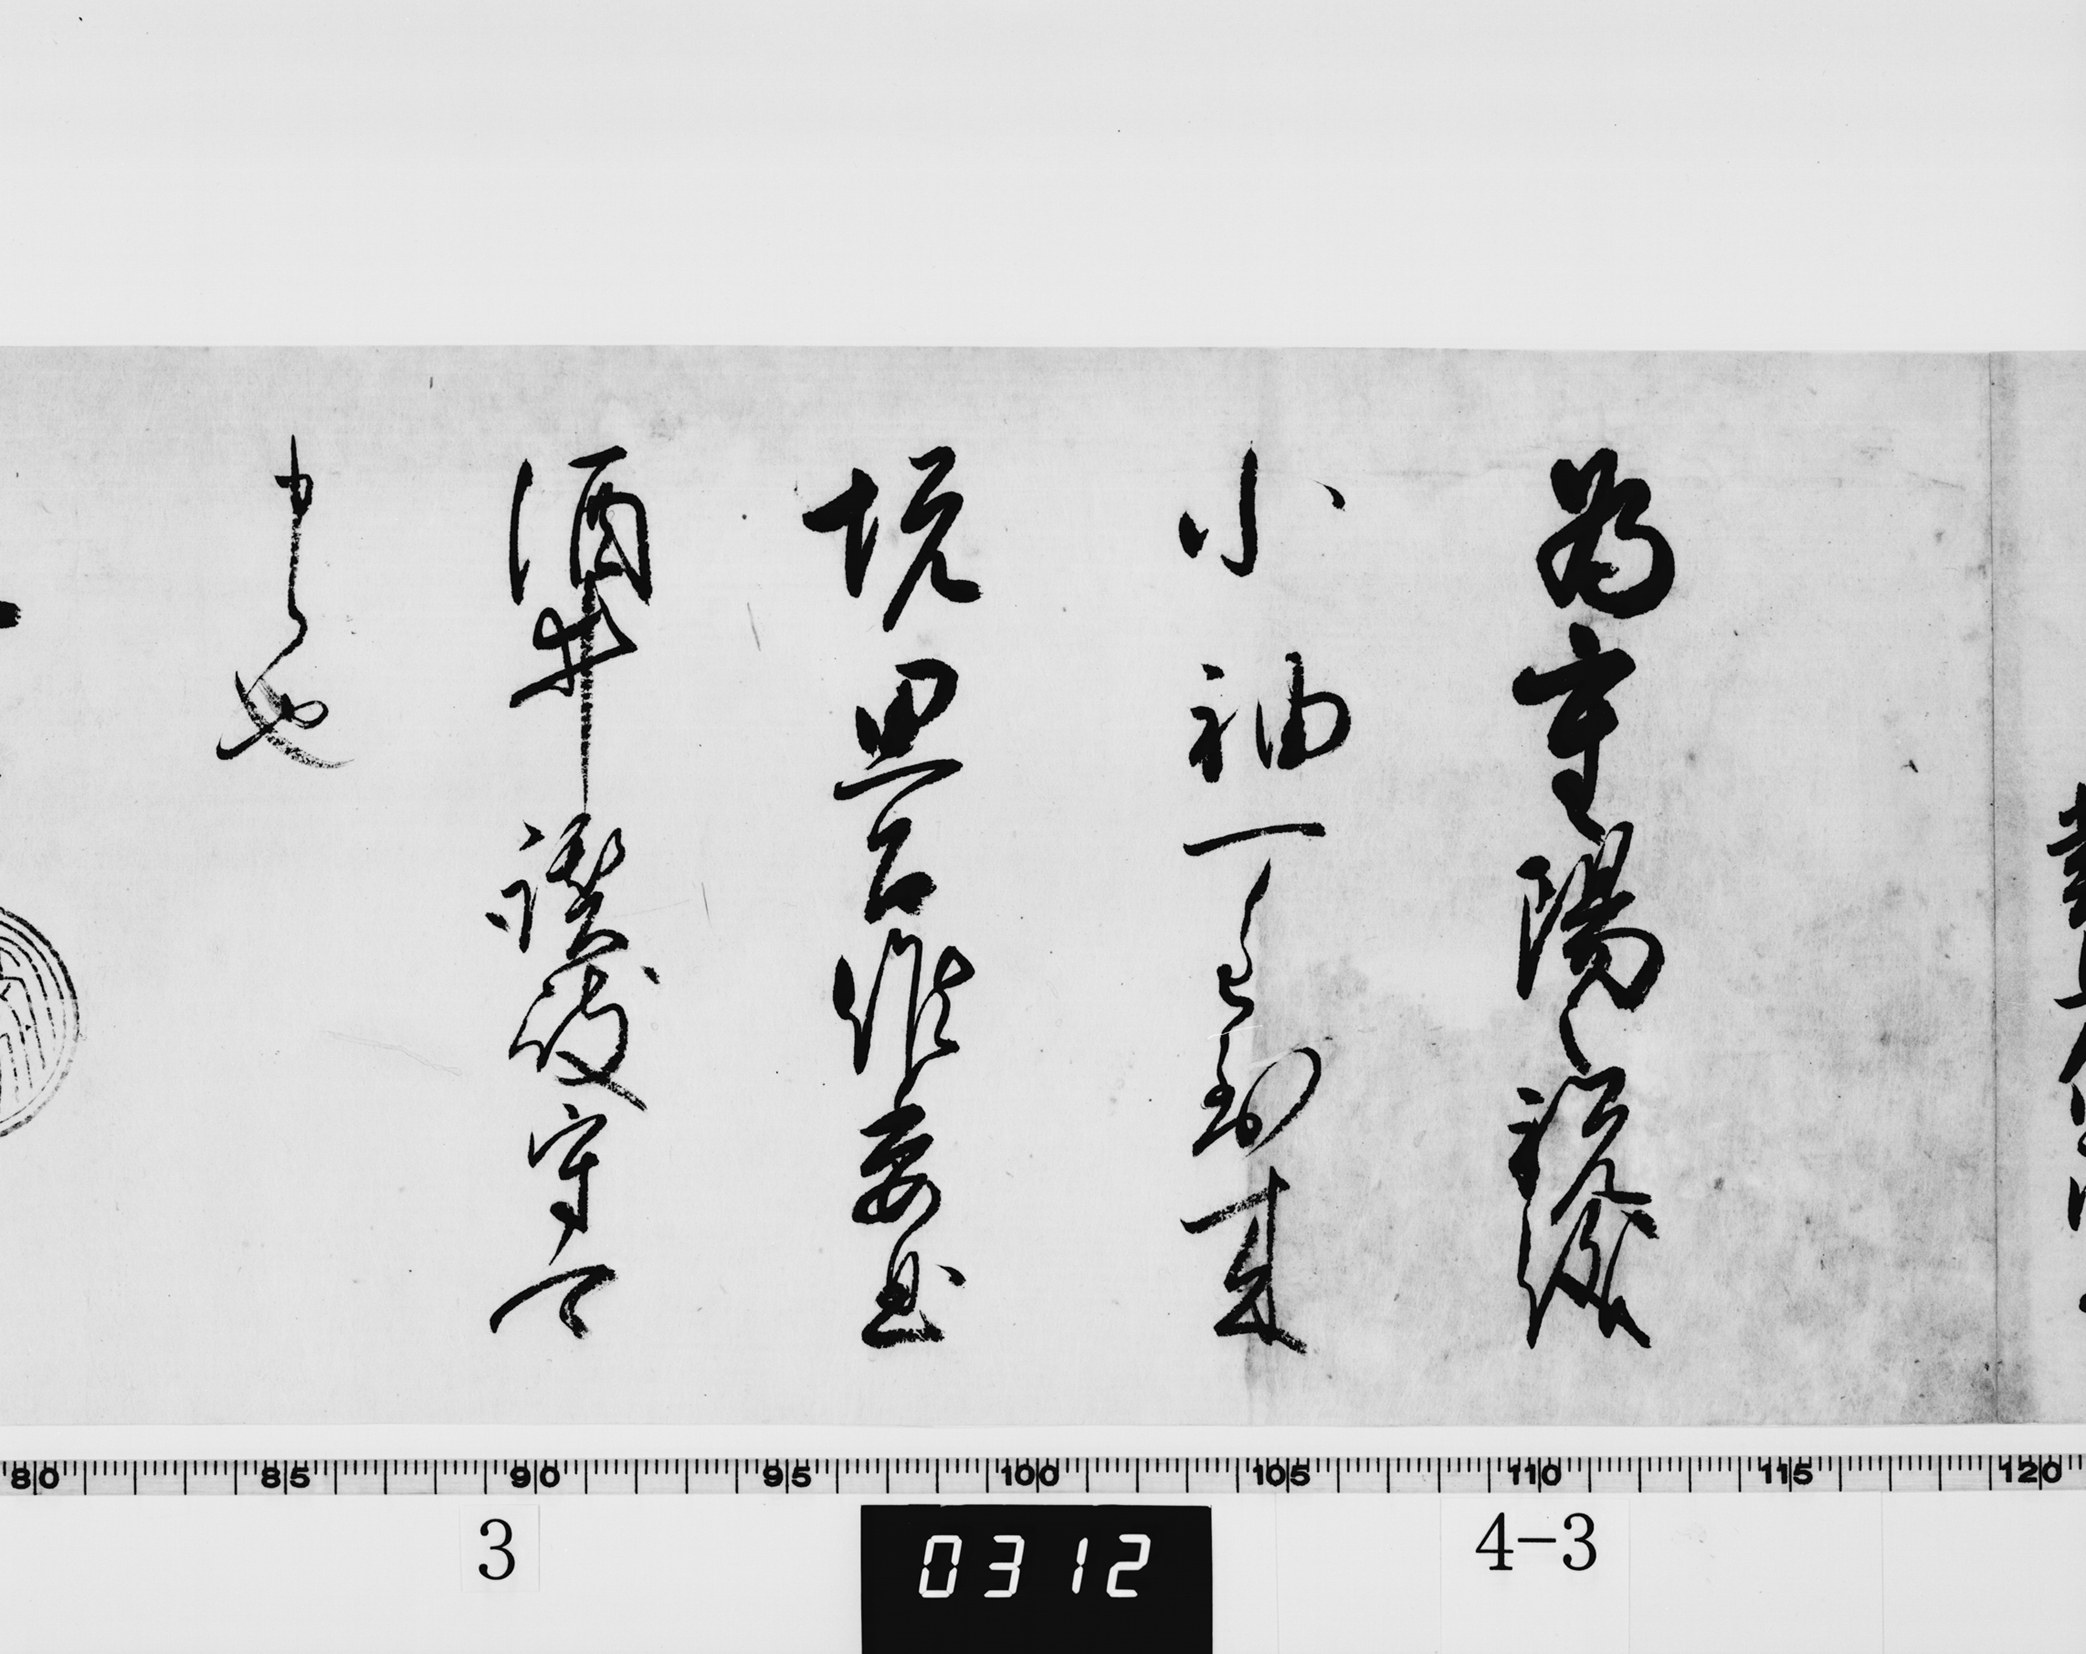 為重陽之祝儀
小袖一重到来
悦思召候委曲
酒井讃岐守可
申也
80 85 90 95 100 105 110 115 120
3 0312 4-3